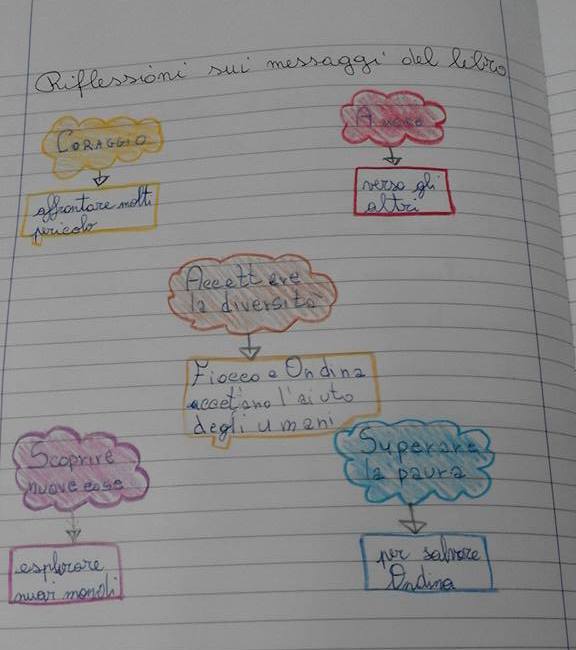 Riflessioni sui messaggi del libro
CORAGGIO
affrontare molti
pericolo
Amore
verso gli
altri
Accettare
la diversità
Fiocco e Ondina
accettano l'aiuto
degli umani
Scoprire
nuove cose
esplorare
nuovi mondi
Superare
la paura
per salvare
Ondina